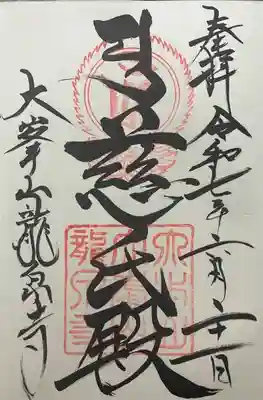 奉拝 令和七年六月二十一日
慈氏殿
大峯山龍泉寺